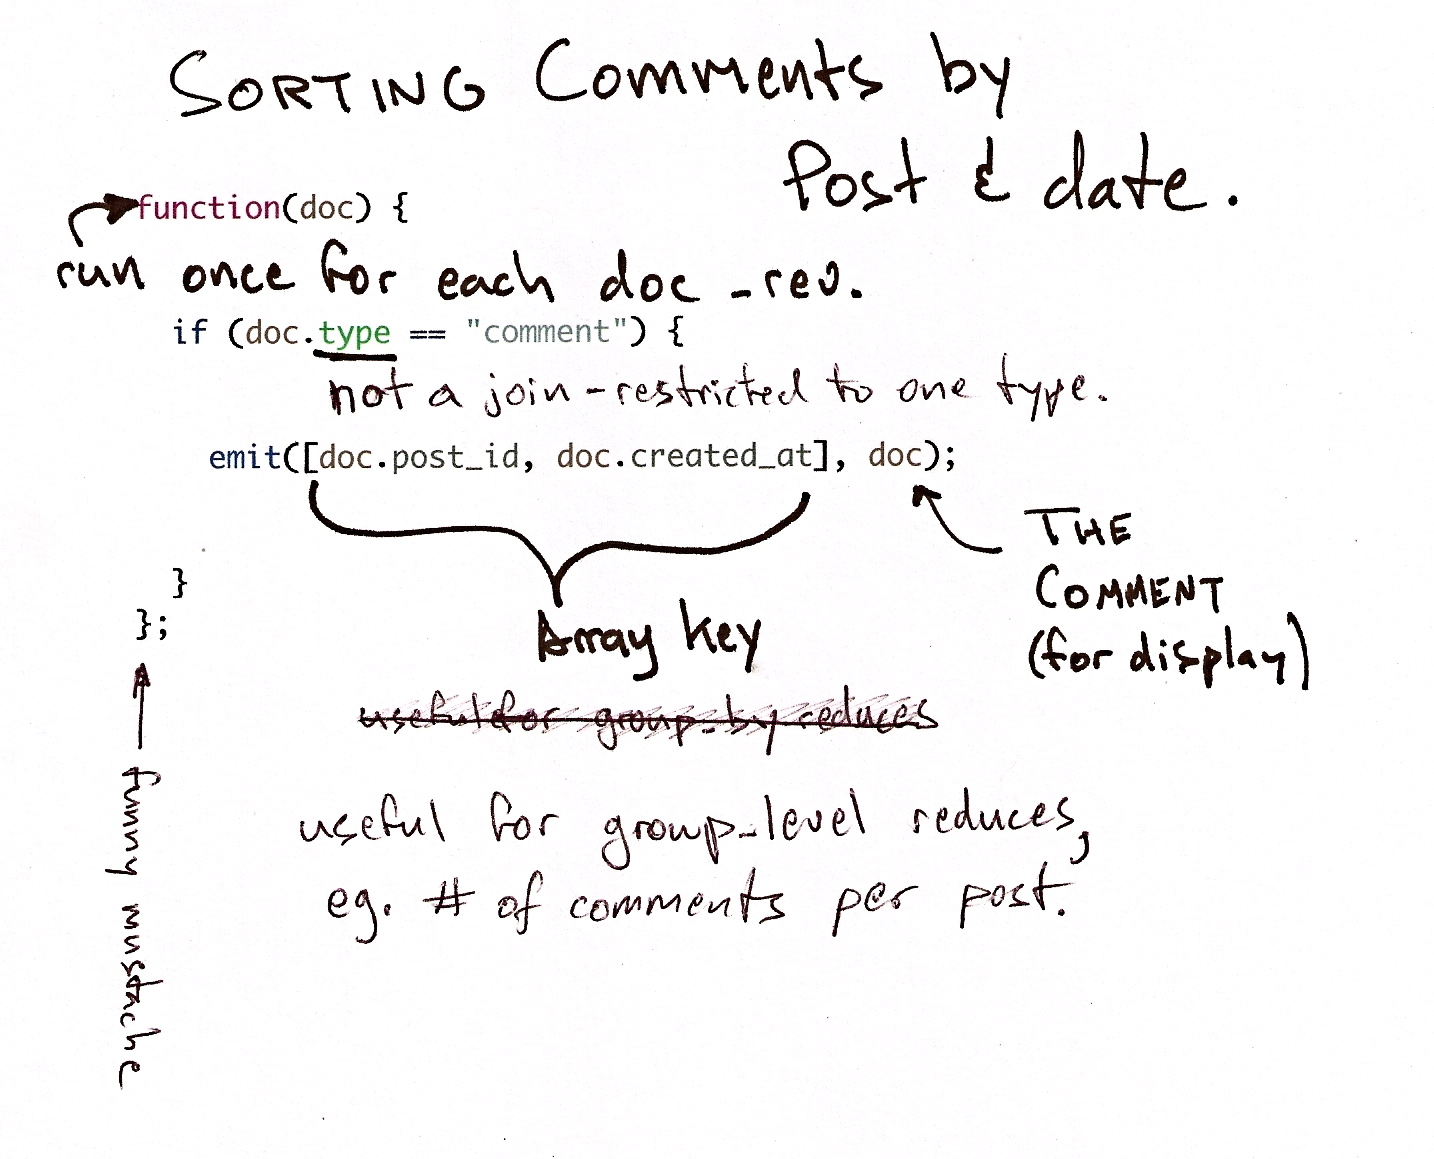 SORTING Comments by
Post & date.
function(doc) {
run once for each doc _rev.
if (doc.type == "comment") {
not a join - restricted to one type.
emit([doc.post_id, doc.created_at], doc);
THE
COMMENT
(for display)
}
};
Array key
useful for group_by reduces
useful for group_level reduces,
eg. # of comments per post.
funny mustache